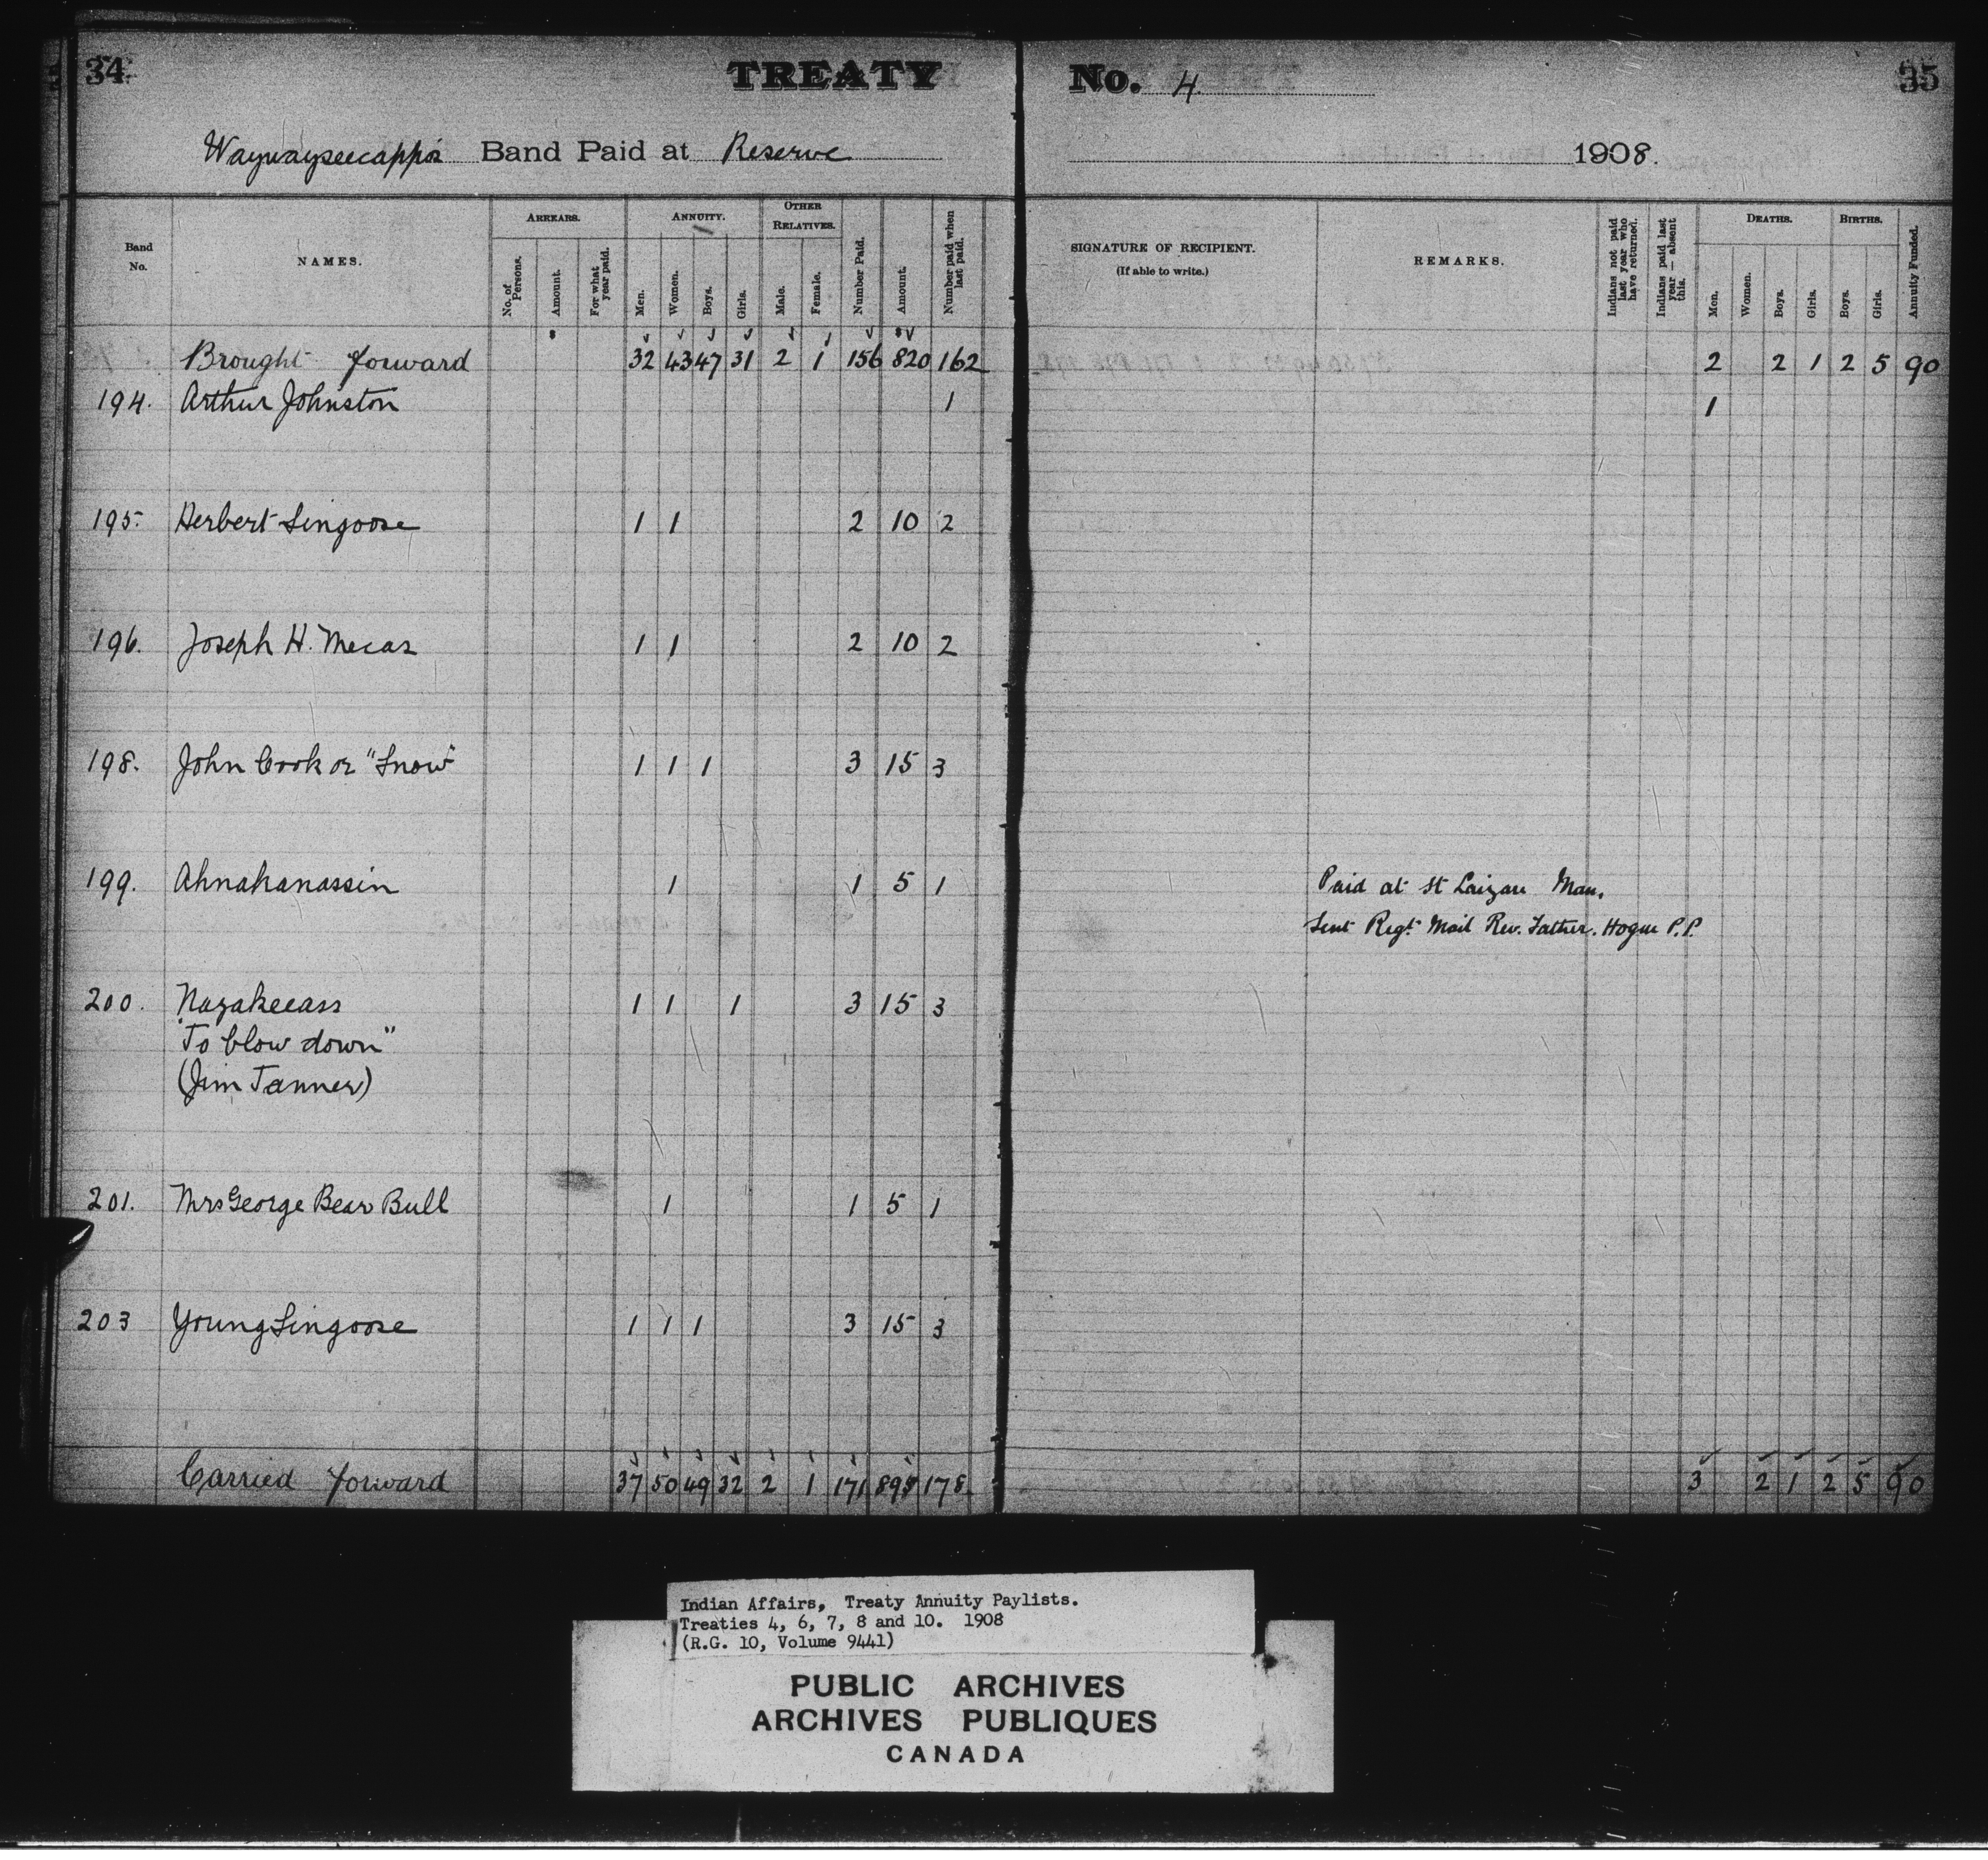 34 TREATY No. 4 35
Waywayseecappo's Band Paid at Reserve 1908.
Band No. NAMES. ARREARS. No. of Persons. Amount. For what year paid. ANNUITY. Men. Women. Boys. Girls. OTHER RELATIVES. Male. Female. Number Paid. Amount. Number paid when last paid. SIGNATURE OF RECIPIENT. (If able to write.) REMARKS. Indians not paid last year who have returned. Indians paid last year — absent this. DEATHS. Men. Women. Boys. Girls. BIRTHS. Boys. Girls. Annuity Funded.
Brought forward 32 43 47 31 2 1 156 820 162 2 2 1 2 5 90
194. Arthur Johnston 1 1
195. Herbert Singoose 1 1 2 10 2
196. Joseph H. Mecas 1 1 2 10 2
198. John Cook or "Snow" 1 1 1 3 15 3
199. Ahnakanassin 1 1 5 1 Paid at St Laizare Man.
Sent Regt. Mail Rev. Father. Hogue P.P.
200. Nazakeeass 1 1 1 3 15 3
"To blow down"
(Jim Tanner)
201. Mrs George Bear Bull 1 1 5 1
203 Young Singoose 1 1 1 3 15 3
Carried forward 37 50 49 32 2 1 171 895 178. 3 2 1 2 5 90
Indian Affairs, Treaty Annuity Paylists.
Treaties 4, 6, 7, 8 and 10. 1908
(R.G. 10, Volume 9441)
PUBLIC ARCHIVES
ARCHIVES PUBLIQUES
CANADA